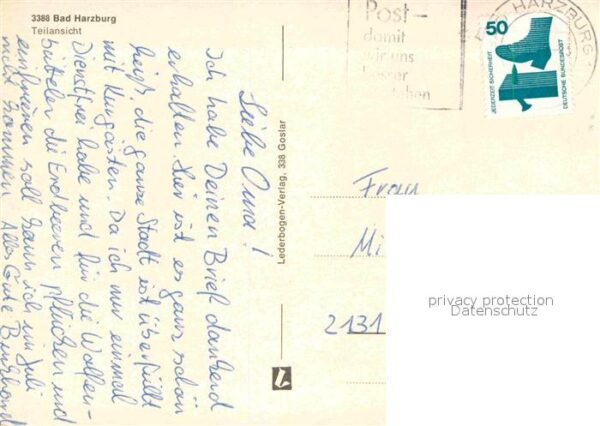 3388 Bad Harzburg
Teilansicht
Liebe Oma!
Ich habe Deinen Brief dankend
erhalten. Hier ist es ganz schön
heiß, die ganze Stadt ist überfüllt
mit Kurgästen. Da ich nur einmal
Dienstfrei habe und für die Wolfen-
büteler die Erdbeeren pflücken und
einfrieren soll kann ich im Juli
nicht kommen. Alles Gute
Lederbogen-Verlag, 338 Goslar
Post-
damit
wir uns
besser
HARZBURG
50
JEDERZEIT SICHERHEIT
DEUTSCHE BUNDESPOST
Frau
Mi
2131
privacy protection
Datenschutz